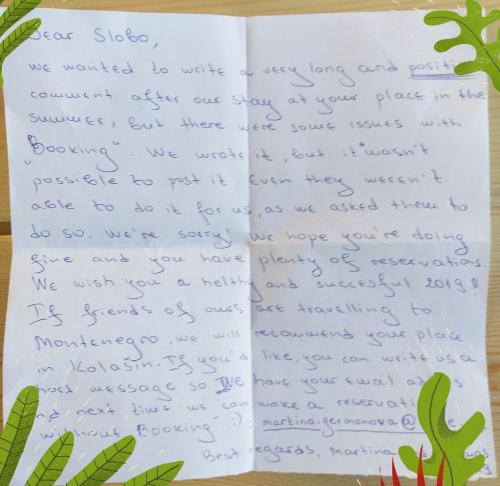 Dear Slobo,
we wanted to write a very long and positive
comment after our stay at your place in the
summer, but there were some issues with
"Booking". We wrote it, but it wasn't
possible to post it. Even they weren't
able to do it for us, as we asked them to
do so. We're sorry! We hope you're doing
fine and you have plenty of reservations.
We wish you a helthy and succesful 2019!
If friends of ours are travelling to
Montenegro, we will recommend your place
in Kolašin. If you'd like, you can write us a
message so we have your email
next time we can make a
without Booking" :) : martina.germanova@
Best regards, Martina